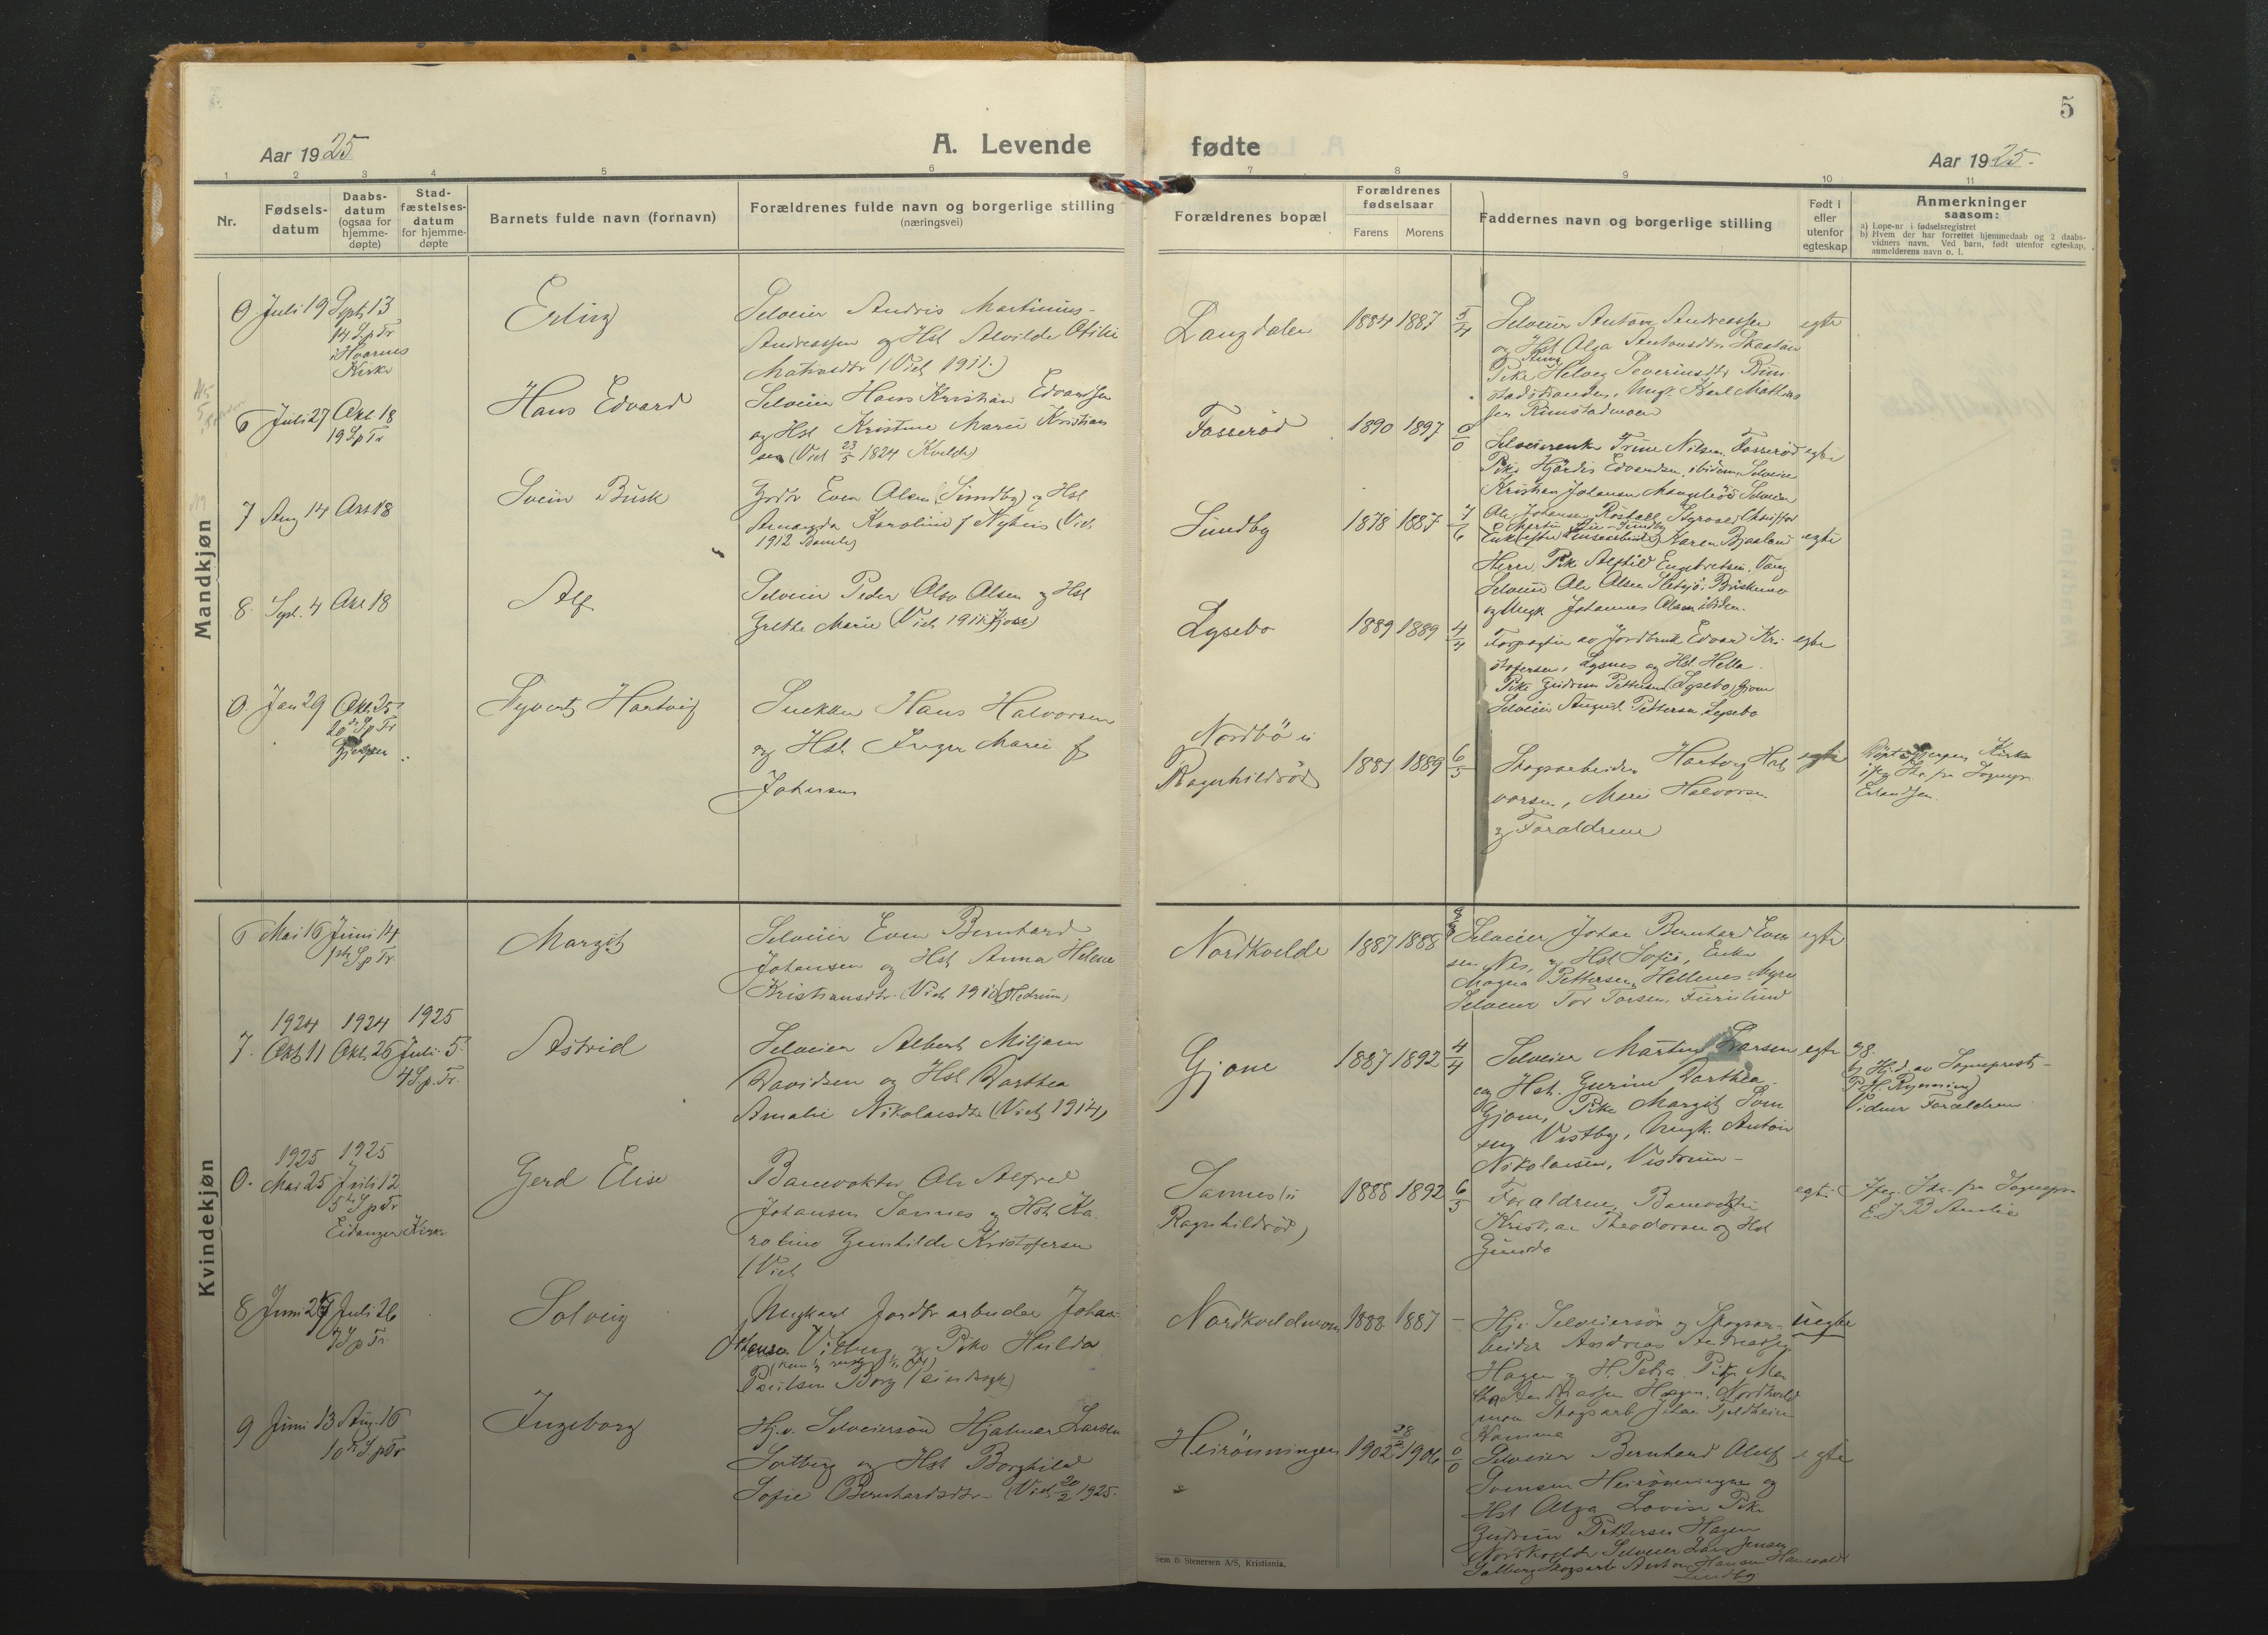 5
Aar 1925
A. Levende fødte
Aar 1925.
1 2 3 4 5 6 7 8 9 10 11
Nr.
Fødsels-
datum
Daabs-
datum
(ogsaa for
hjemme-
døpte)
Stad-
fæstelses-
datum
for hjemme-
døpte
Barnets fulde navn (fornavn)
Forældrenes fulde navn og borgerlige stilling
(næringsvei)
Forældrenes bopæl
Forældrenes
fødselsaar
Farens Morens
Faddernes navn og borgerlige stilling
Født i
eller
utenfor
egteskap
Anmerkninger
saasom:
a) Løpe-nr i fødselsregistret
b) Hvem der har forrettet hjemmedaab og 2 daabs-
vidners navn. Ved barn, født utenfor egteskap,
anmelderens navn o. l.
Mandkjøn
0 Juli 19 Sept 13
14 S. p. Tr
i Hvarnes
Kirke
Erling
Selveier Andris Martinius
Andreassen og Hst Alvilde Otilie
(Viet 1911.)
Langdalen
1884 1887 5/4
Selveier Anton Andreassen
og Hst Olga Antonsdtr Skastan
Pike Helvig Severinsdtr Rim
stadstranden, Ungk. Karl Mathias
sen Rimstadmoen
egte
6 Juli 27 Okt. 18
19 S p Tr
Hans Edvard
Selveier Hans Kristian Edvardsen
og Hst Kristine Marie Kristian
sen (Viet 23/5 1824 Kvelde)
Fosserød
1890 1897 0/0
Selveierenke Trine Nilsen, Fosserød
Pike Hjørdis Edvardsen, ibidem, Selveier
Kristian Johansen Mangelrød Selveier
egte
7 Aug 14 Okt 18
Svein Busk
Grdr Even Olsen (Sundby) og Hst
Amanda Karoline f Nyhus (Viet
1912 Bamble)
Sundby
1878 1887 7/6
Ole Johansen
Karen Bjaaland
Herre, Pike Engebretsen, Vang
Selveier Ole Olsen
og Ungk Johannes Olsen ibidem.
egte
8. Sept. 4 Okt 18
Alf
Selveier Peder Olav Olsen og Hst
Grethe Marie (Viet 1911 Kjose)
Lysebo
1889 1889 4/4
Forpagter av Jordbruk Edvard Kri
stofersen, Lysnes og Hst Hella
Pike Gudrun Pettersen (Lysebo) Gjone
Selveier August Pettersen Lysebo
egte
0. Jan 29 Okt. 25
20de S p Tr
Gjerpen
Syvert Hartvig
Snekker Hans Halvorsen
og Hst Inger Marie f
Johansen
Nordbø u
Ragnhildrød
1881 1889 6/5
Skogsarbeider Hartvig Hal
vorsen, Marie Halvorsen
og Forældrene
egte
Døpt i Gjerpen Kirke
iføg Skr. fra Sognepr
Erlandsen.
Kvindekjøn
6 Mai 16 Juni 14
1ste S p Tr.
Margit
Selveier Even Bernhard
Johansen og Hst Anna Helene
Kristiansdtr. (Viet 1910 Hedrum)
Nordkvelde
1887 1888
Selveier Johan Bernhard Even
sen Nes, og Hst Sofie, Enke
Magna Pettersen, Hellenes Myra
Selveier Tor Torsen, Furulund
egte
1924 1924 1925
7. Okt 11 Okt. 26 Juli 5.
4 S. p. Tr.
Astrid
Selveier Albert Miljam
Davidsen og Hst Dorthea
Amalie Nikolaisdtr (Viet 1914)
Gjone
1887 1892 4/4
Selveier Martin Larsen
og Hst. Gurine Dorthea
Gjone, Pike Margit Tom
sen Vestby, Ungk. Anton
Nikolaisen, Vestrum
egte
b) Hjd. av Sogneprest
P. H. Rynning
Vidner Forældrene
1925 1925
0. Mai 25 Juli 12
5te S p Tr
Eidanger Kirke
Gerd Elise
Banevokter Ole Alfred
Johansen Sannes og Hst Ka
roline Gunhilde Kristofersen
(Viet
Sannes (u
Ragnhildrød)
1888 1892 6/5
Forældrene, Banevokter
Kristian Theodorsen og Hst
Gunda
egte
Iføg. Skr. fra Sognepr.
8 Juni 27 Juli 26
7 S p Tr.
Solveig
Ungkarl Jordbr arbeider Johan
Johansen Vilberg og Pike Hulda
Paulsen Borg (sindssyk)
Nordkveldmoen
1888 1887 –
Hj. v. Selveiersøn og Skogsar
beider Andreas Andreassen
Hagen og H. Petra. Pike Mar
tha Andreassen Hagen, Nordkveld
moen Skogsarb Johan Fjeldheim
Komme
uegte
9 Juni 13 Aug. 16
10de S p Tr
Ingeborg
Hj. v. Selveiersøn Hjalmar Larsen
Solberg og Hst Borghild
Sofie Bernhardsdtr. (Viet 20/2 1925.
Heirønningen
1902 28/2 1906 0/0
Selveier Bernhard Olaf
Svensen Heirønningen og
Hst Olga Lovise Pike
Gudrun Pettersen Hagen
Nordkvelde Selveier Lars Jensen
Solberg Skogsarb Anton Hansen Hanevold
Sundby
egte
Sem & Stenersen A/S, Kristiania.